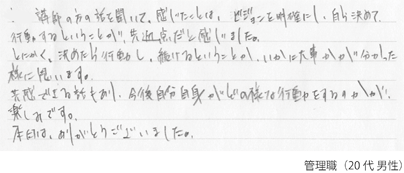 : 講師の方の話を聞いて、感じたことは、ビジョンを明確にし、自ら決めて
行動するということが、共通点だと感じました。
とにかく、決めたら行動し、続けるということが、いかに大事かが分かった
様に思います。
共感できる話もあり、今後自分自身がどの様な行動をするのかが、
楽しみです。
本日は、ありがとうございました。
管理職（20代 男性）